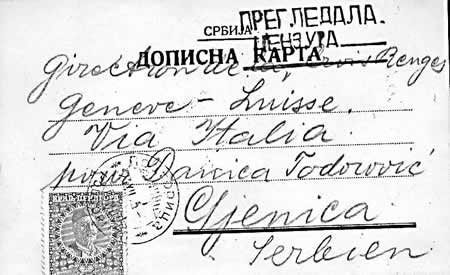 СРБИЈА ПРЕГЛЕДАЛА.
ЦЕНЗУРА
ДОПИСНА КАРТА
Direction de la Croix Rouges
Geneve - Suisse.
Via Italia
pour Danica Todorović
Sjenica
Serbien